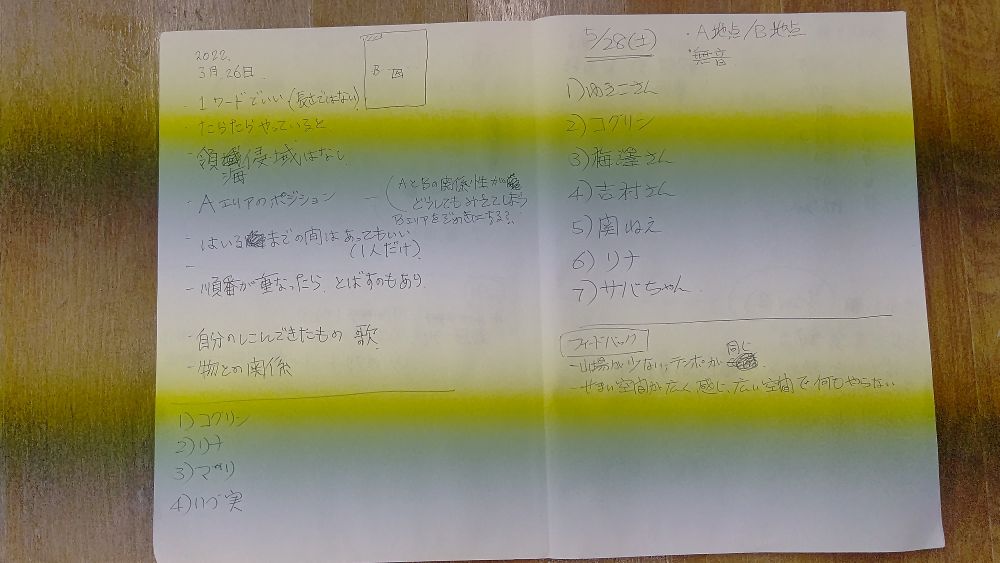 2022.
3月26日.
B
・1ワードでいい (長さではない)
・だらだらやっていると
・領海侵域はなし
・Aエリアのポジション
(AとBの関係性が
どうしてもみえてしまう
Bエリアを
- はいるまでの間はあってもいい
(1人だけ)
-
- 順番が重なったら、とばすのもあり
- 自分のしこんできたもの 歌
- 物との関係
1) コグリン
2) リナ
3) マリ
4) いづ実
5/28(土)
・A地点/B地点
無音
1) ゆきこさん
2) コグリン
3) 梅澤さん
4) 吉村さん
5) 関ねえ
6) リナ
7) サバちゃん
フィードバック
- 山場が少ない、テンポが同じ
- せまい空間が広く感じ、広い空間で何もやらない